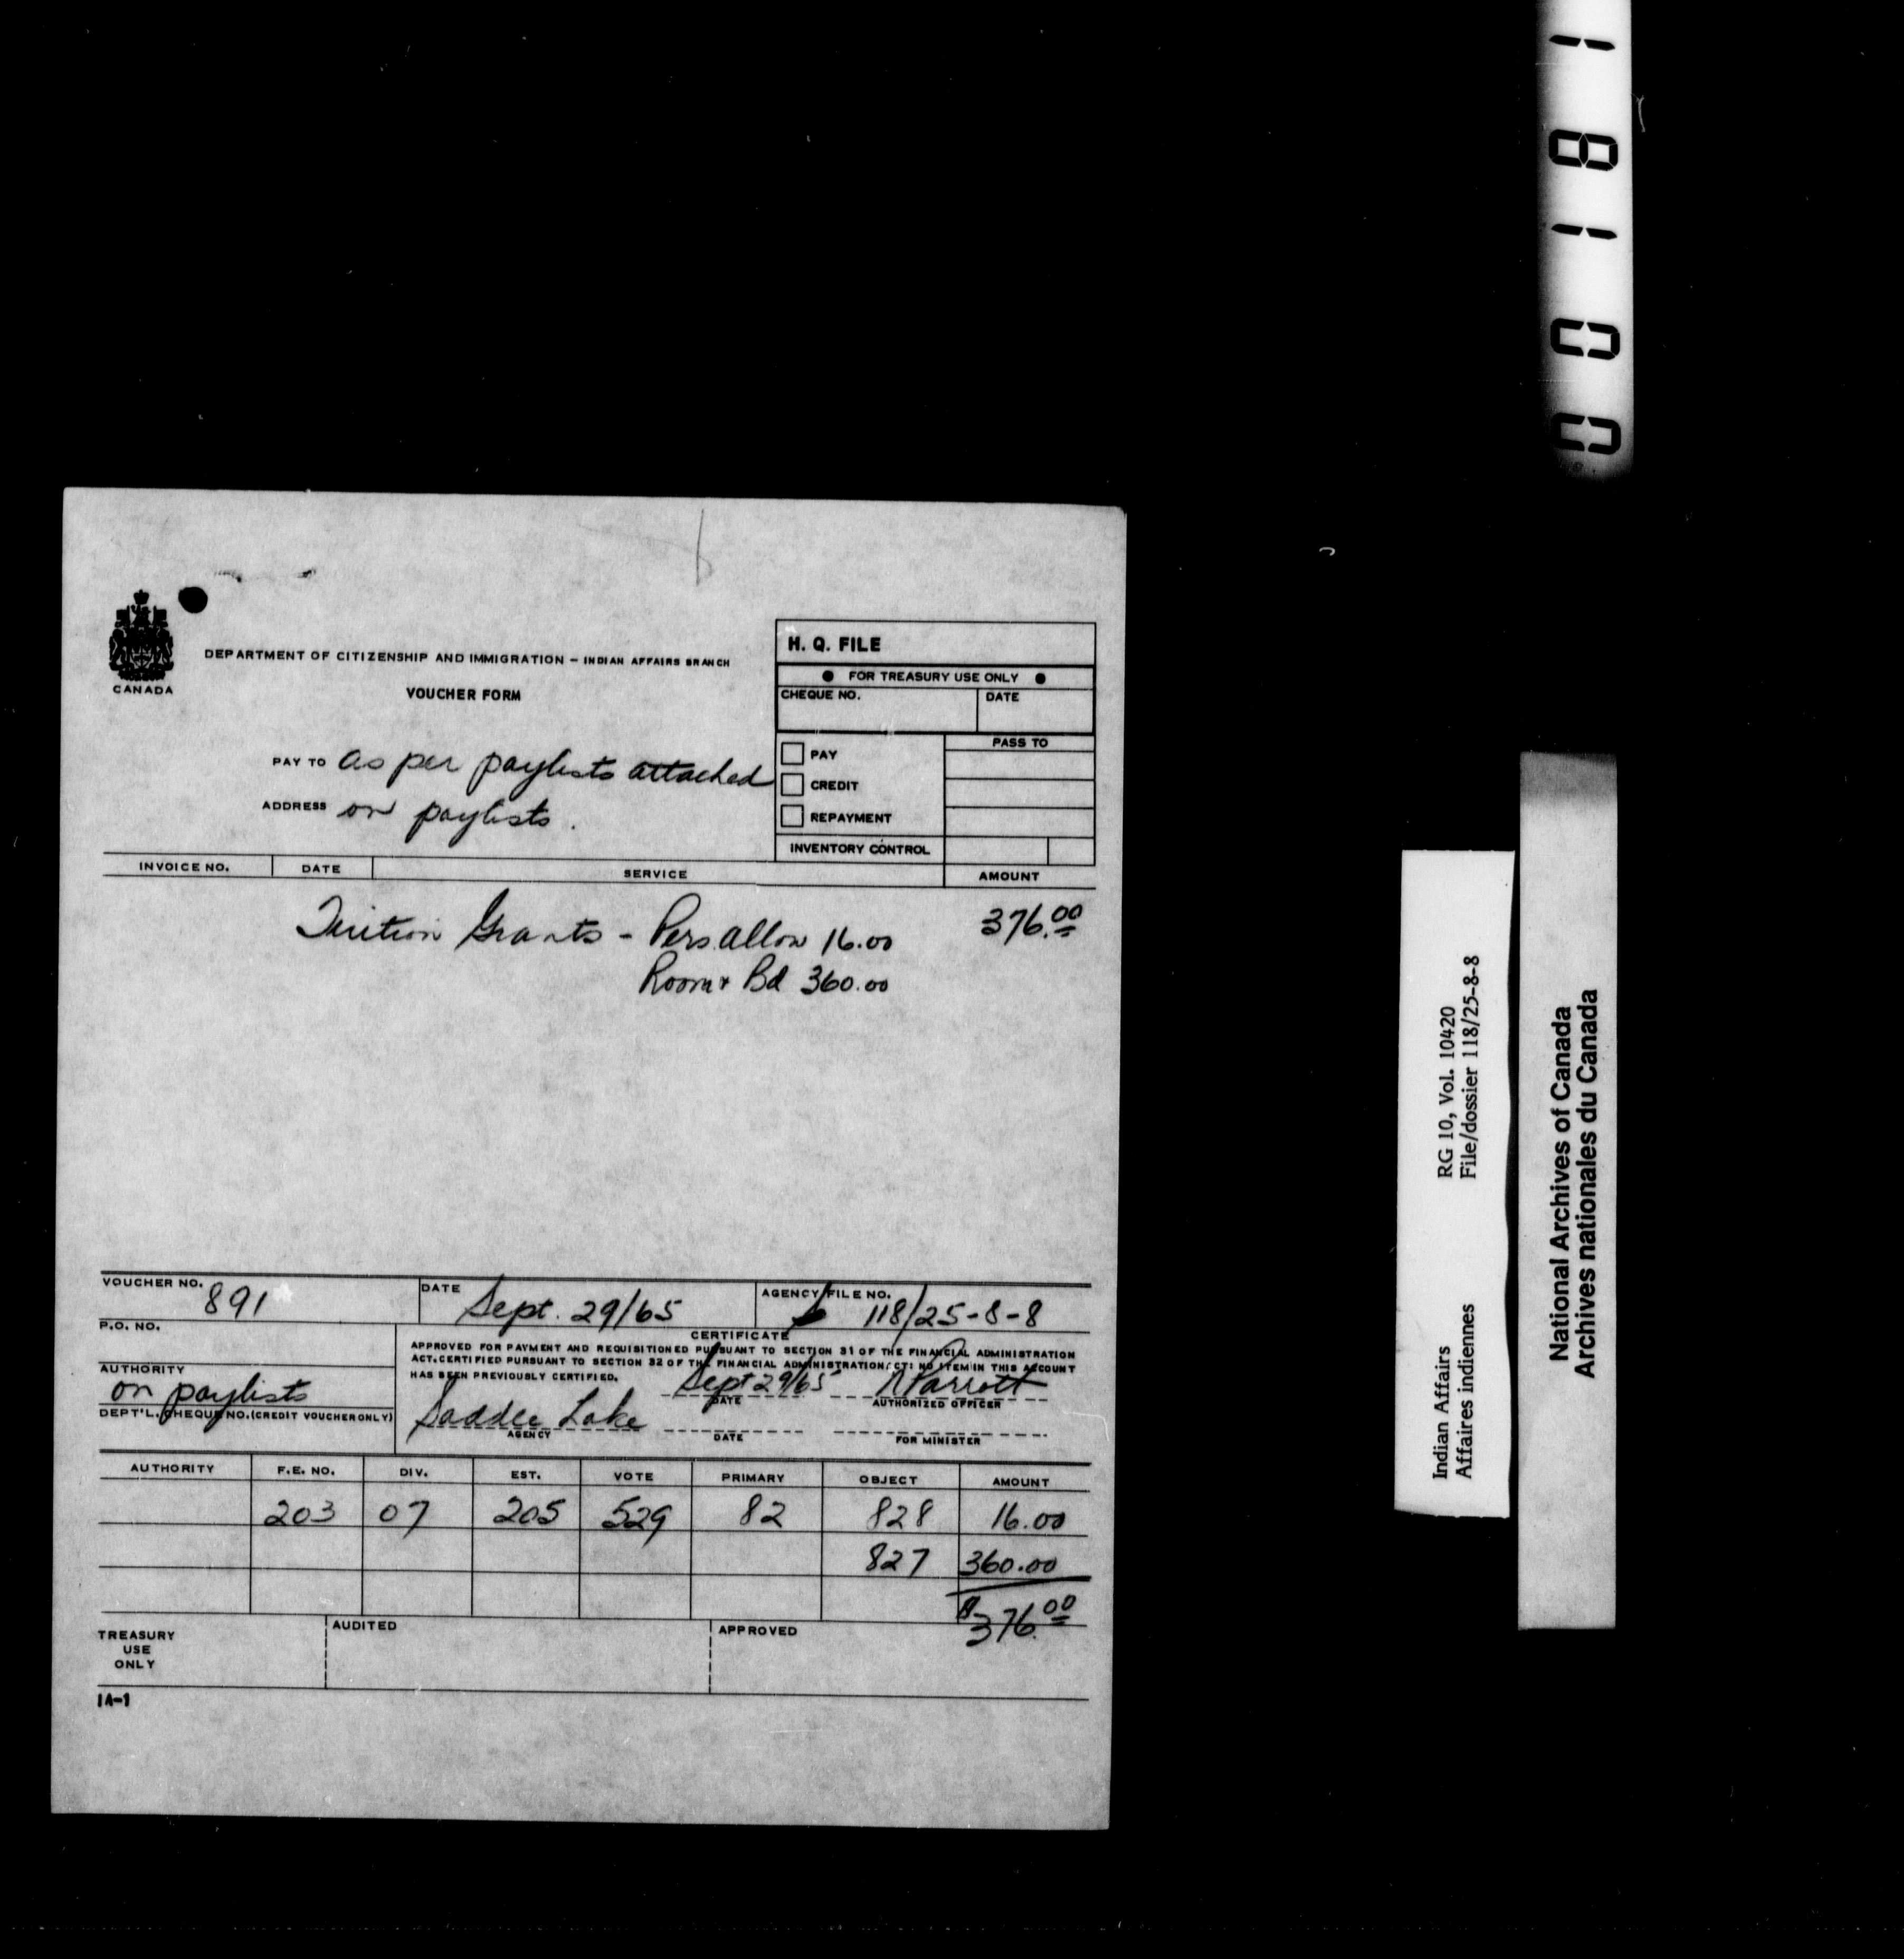 CANADA
DEPARTMENT OF CITIZENSHIP AND IMMIGRATION – INDIAN AFFAIRS BRANCH
VOUCHER FORM
H. Q. FILE
● FOR TREASURY USE ONLY ●
CHEQUE NO. DATE
PASS TO
PAY
CREDIT
REPAYMENT
INVENTORY CONTROL
PAY TO as per paylists attached
ADDRESS on paylists.
INVOICE NO. DATE SERVICE AMOUNT
Tuition Grants - Pers. allow 16.00 376.00
Room & Bd 360.00
VOUCHER NO. 891 DATE Sept. 29/65 AGENCY FILE NO. 118/25-8-8
P.O. NO.
AUTHORITY
on paylists
DEPT'L. CHEQUE NO. (CREDIT VOUCHER ONLY)
CERTIFICATE
APPROVED FOR PAYMENT AND REQUISITIONED PURSUANT TO SECTION 31 OF THE FINANCIAL ADMINISTRATION
ACT. CERTIFIED PURSUANT TO SECTION 32 OF THE FINANCIAL ADMINISTRATION CT: NO ITEM IN THIS ACCOUNT
HAS BEEN PREVIOUSLY CERTIFIED.
Sept 29/65 Parrott
DATE AUTHORIZED OFFICER
Saddle Lake
AGENCY DATE FOR MINISTER
AUTHORITY F.E. NO. DIV. EST. VOTE PRIMARY OBJECT AMOUNT
203 07 205 529 82 828 16.00
827 360.00
$376.00
TREASURY
USE
ONLY
AUDITED
APPROVED
IA-1
00181
Indian Affairs RG 10, Vol. 10420
Affaires indiennes File/dossier 118/25-8-8
National Archives of Canada
Archives nationales du Canada